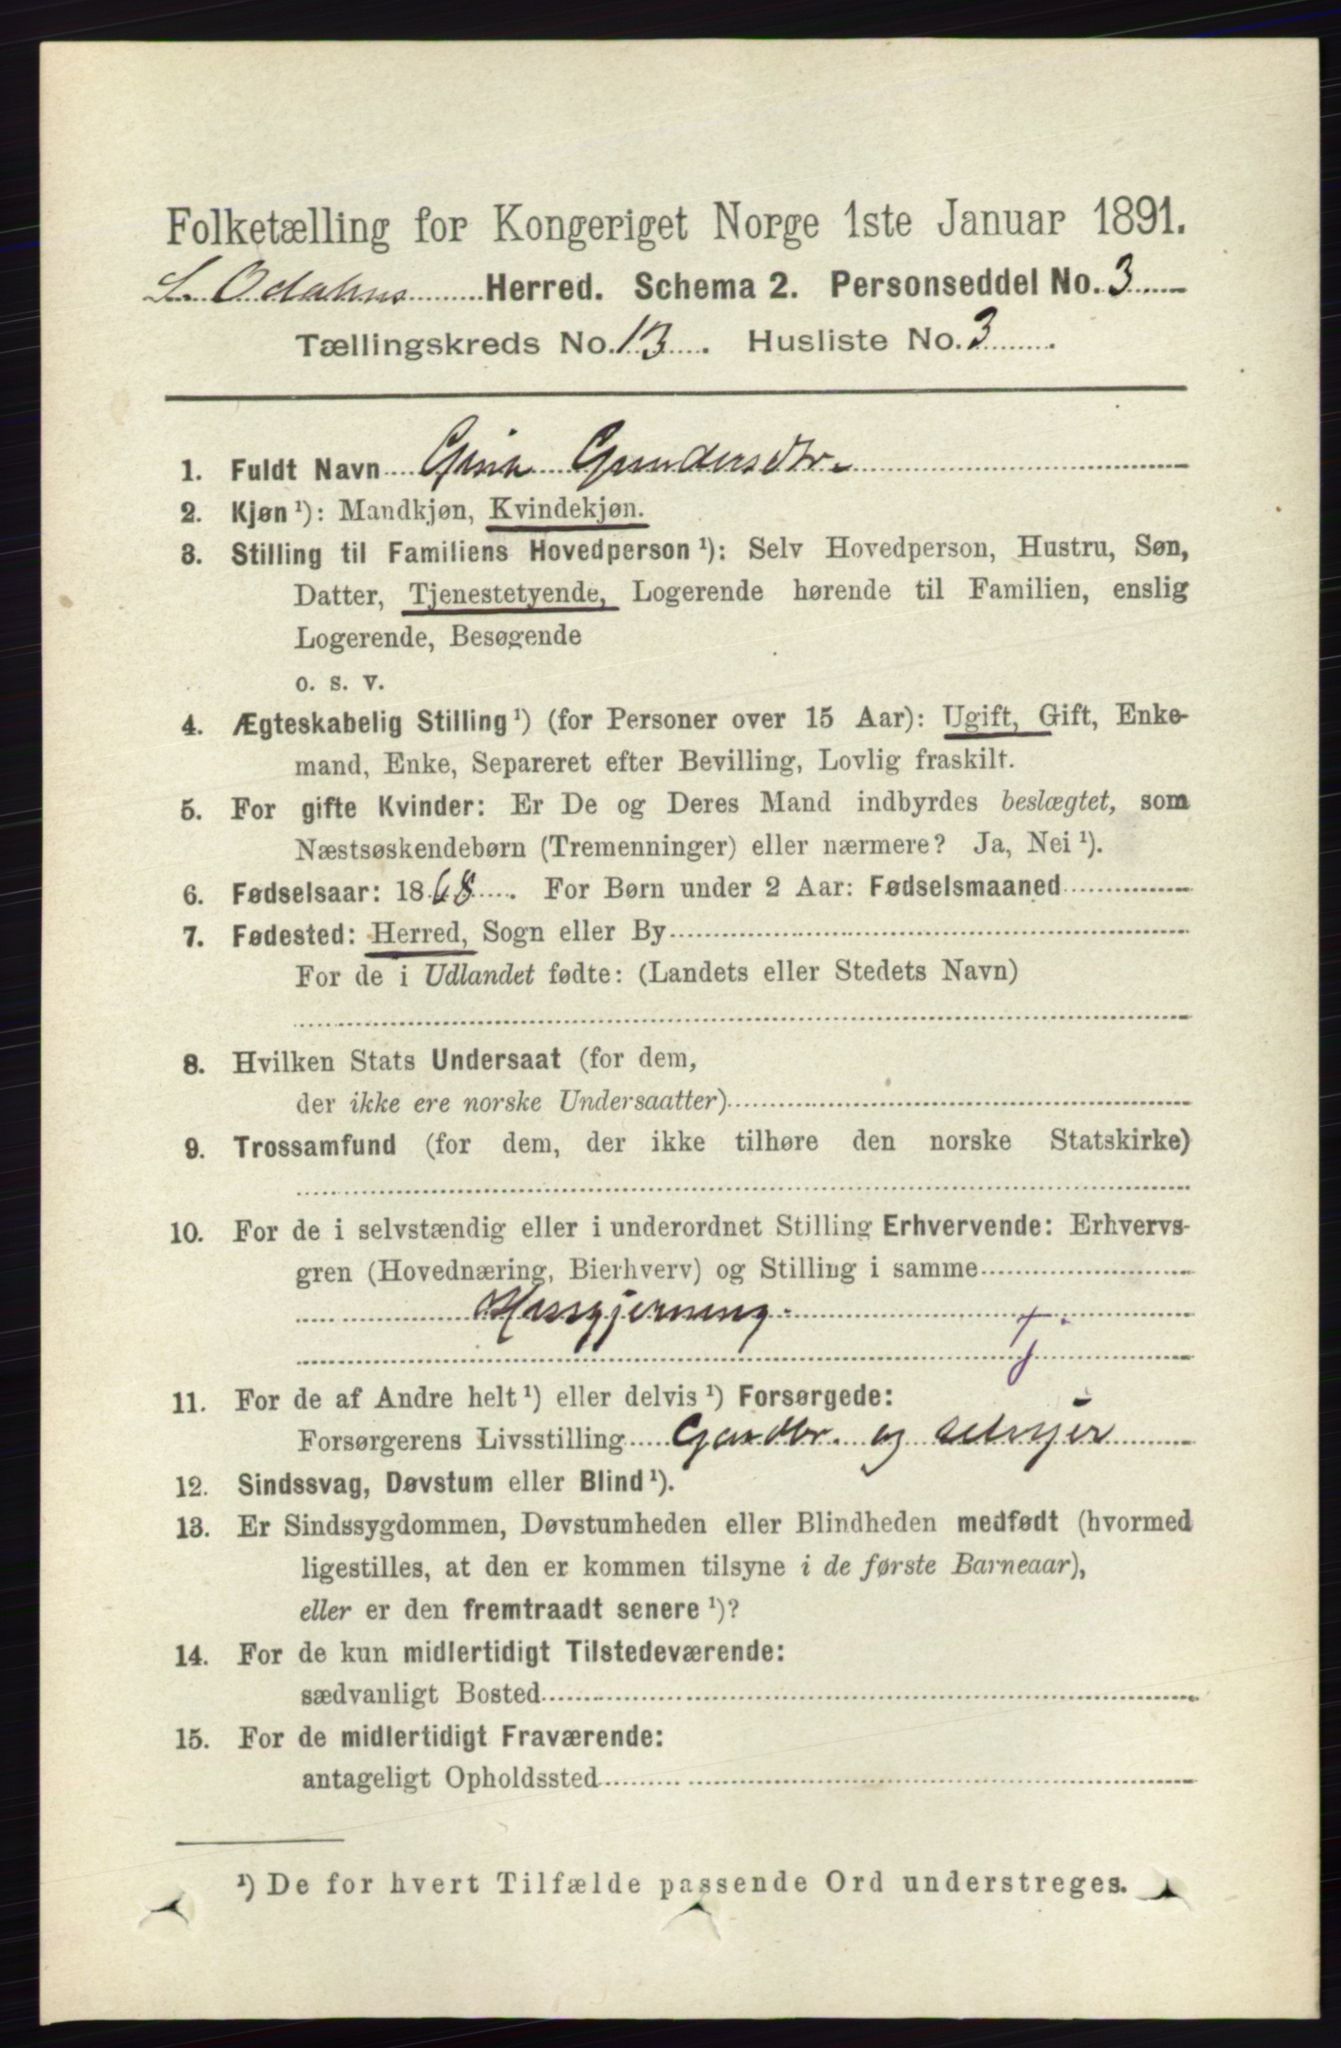 Folketælling for Kongeriget Norge 1ste Januar 1891.
S. Odalens Herred. Schema 2. Personseddel No. 3
Tællingskreds No. 13. Husliste No. 3.
1. Fuldt Navn Gina Gundersdtr.
2. Kjøn ¹): Mandkjøn, Kvindekjøn.
3. Stilling til Familiens Hovedperson ¹): Selv Hovedperson, Hustru, Søn,
Datter, Tjenestetyende, Logerende hørende til Familien, enslig
Logerende, Besøgende
o. s. v.
4. Ægteskabelig Stilling ¹) (for Personer over 15 Aar): Ugift, Gift, Enke-
mand, Enke, Separeret efter Bevilling, Lovlig fraskilt.
5. For gifte Kvinder: Er De og Deres Mand indbyrdes beslægtet, som
Næstsøskendebørn (Tremenninger) eller nærmere? Ja, Nei ¹).
6. Fødselsaar: 1868. For Børn under 2 Aar: Fødselsmaaned
7. Fødested: Herred, Sogn eller By
For de i Udlandet fødte: (Landets eller Stedets Navn)
8. Hvilken Stats Undersaat (for dem,
der ikke ere norske Undersaatter)
9. Trossamfund (for dem, der ikke tilhøre den norske Statskirke)
10. For de i selvstændig eller i underordnet Stilling Erhvervende: Erhvervs-
gren (Hovednæring, Bierhverv) og Stilling i samme
Husgjerning.
11. For de af Andre helt ¹) eller delvis ¹) Forsørgede:
Forsørgerens Livsstilling Gardbr. og selvejer
12. Sindssvag, Døvstum eller Blind ¹).
13. Er Sindssygdommen, Døvstumheden eller Blindheden medfødt (hvormed
ligestilles, at den er kommen tilsyne i de første Barneaar),
eller er den fremtraadt senere ¹)?
14. For de kun midlertidigt Tilstedeværende:
sædvanligt Bosted
15. For de midlertidigt Fraværende:
antageligt Opholdssted
¹) De for hvert Tilfælde passende Ord understreges.